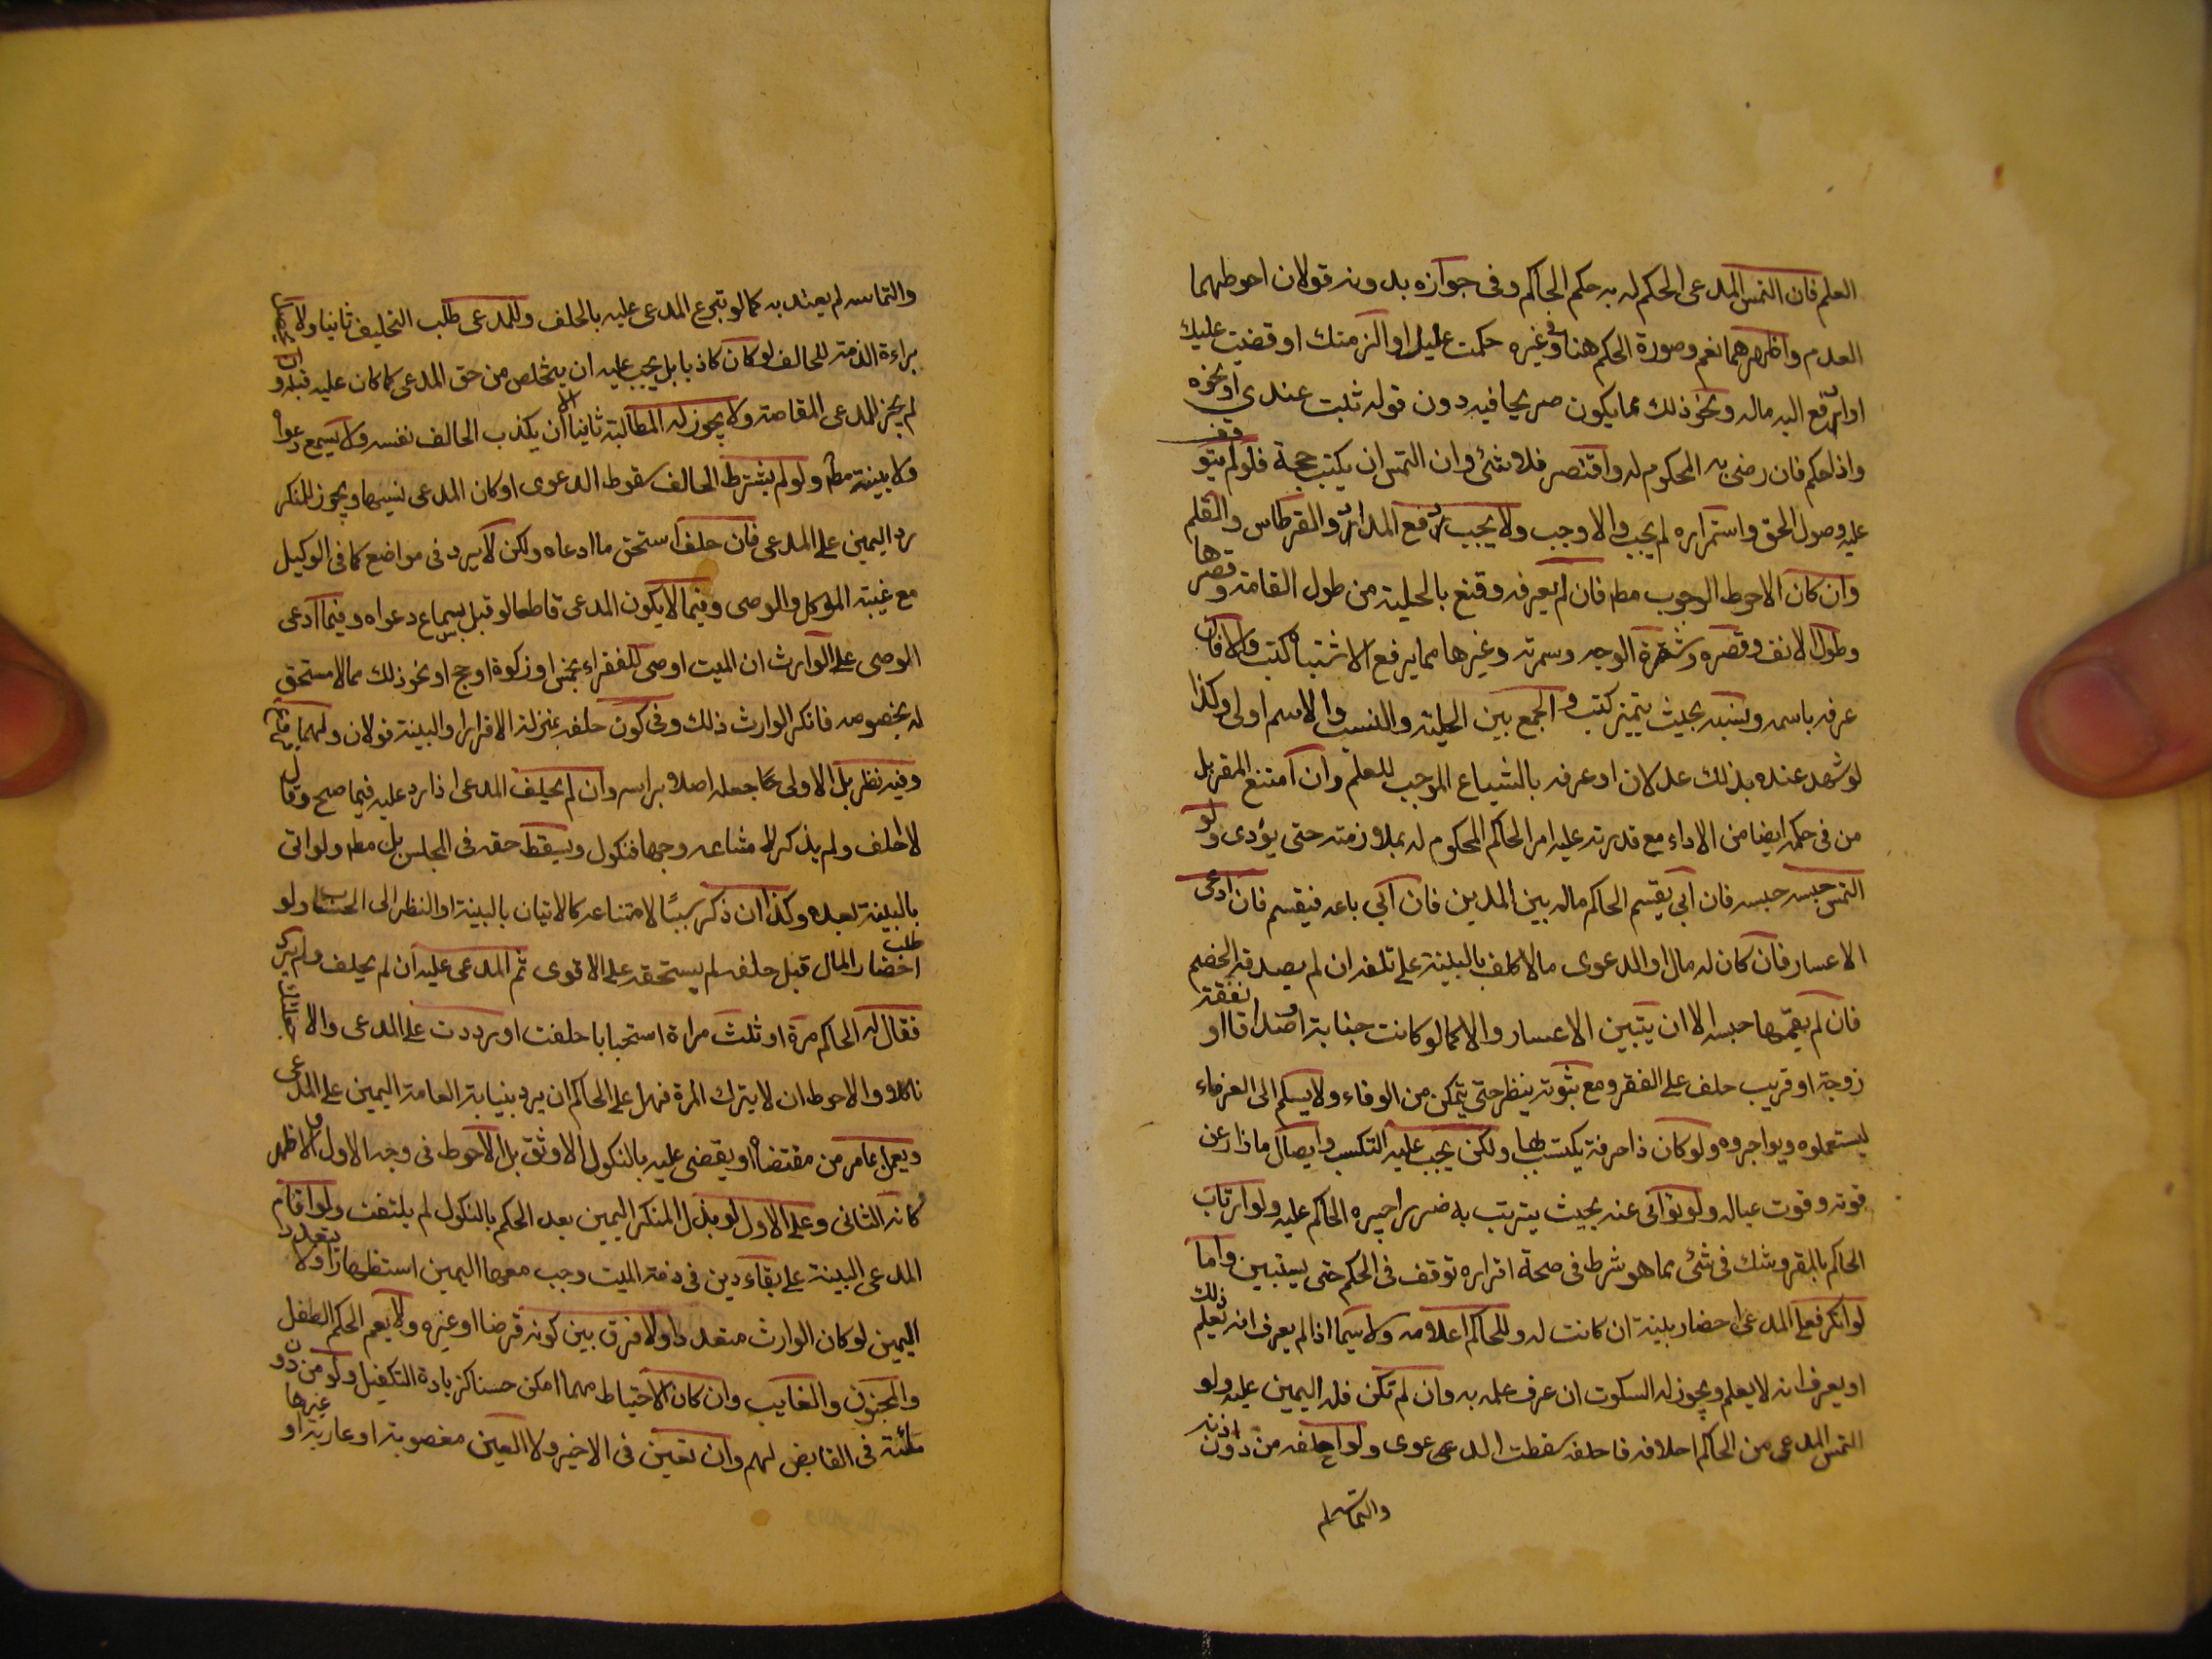 العلم فان التمس المدعى الحكم له به حكم الحاكم وفى جوازه بدونه قولان احوطهما
العدم واظهرهما نعم وصورة الحكم هنا وفى غيره حكمت عليك او الزمتك او قضيت عليك
او ادفع اليه ماله ونحو ذلك مما يكون صريحا فيه دون قوله ثبت عندى او نحوه
واذا حكم فان رضى به المحكوم له واقتصر فلا شئ وان التمس ان يكتب حجة فلو لم يتوقف
عليه وصول الحق واستمراره لم يجب والا وجب ولا يجب دفع المداد والقرطاس والقلم
وان كان الاحوط الوجوب مط فان لم يعرفه وقنع بالحلية من طول القامة وقصرها
وطول الانف وقصره وشقرة الوجه وسمرته وغيرها مما يرفع الاشتباه كتب والا فان
عرفه باسمه ونسبه بحيث يتميز كتب و الجمع بين الحلية والنسب والاسم اولى وكذا
لو شهد عنده بذلك عدلان او عرفه بالشياع الموجب للعلم وان امتنع المقر بل
من فى حكمه ايضا من الاداء مع قدرته عليه امر الحاكم المحكوم له بملازمته حتى يؤدى ولو
التمس حبسه حبسه فان ابى يقسم الحاكم ماله بين المدين فان ابى باعه فيقسم فان ادعى
الاعسار فان كان له مال او الدعوى مالا كلف بالبينة على تلفه ان لم يصدقه الخصم
فان لم يقمها حبسه الا ان يتبين الاعسار والا كما لو كانت جناية او صداقا او نفقة
زوجة او قريب حلف على الفقر ومع ثبوته ينظر حتى يتمكن من الوفاء ولا يسلم الى الغرماء
ليستعملوه ويواجروه ولو كان ذا حرفة يكتسب بها ولكن يجب عليه التكسب وايصال ما زاد عن
قوته وقوت عياله ولو توانى عنه بحيث يترتب به ضرر اجبره الحاكم عليه ولو ارتاب
الحاكم بالمقر وشك فى شئ مما هو شرط فى صحة اقراره توقف فى الحكم حتى يستبين واما
لو انكر فعلى المدعى احضار بينة ان كانت له وللحاكم اعلامه ولا سيما اذا لم يعرف انه يعلم ذلك
او يعرف انه لا يعلم ويجوز له السكوت ان عرف علمه به وان لم تكن فله اليمين عليه ولو
التمس المدعى من الحاكم احلافه فاحلفه سقطت الدعوى ولو احلفه من دون اذنه
والتماسه لم
والتماسه لم يعتد به كما لو تبرع المدعى عليه بالحلف وللمدعى طلب التحليف ثانيا ولا يحصل
براءة الذمة للحالف لو كان كاذبا بل يجب عليه ان يتخلص من حق المدعى كما كان عليه قبله و
لم يجز للمدعى المقاصة ولا يجوز له المطالبة ثانيا الا ان يكذب الحالف نفسه ولا يسمع دعواه
ولا بينته مط ولو لم يشترط الحالف سقوط الدعوى او كان المدعى نسيها ويجوز للمنكر
رد اليمين على المدعى فان حلف استحق ما ادعاه ولكن لا يرد فى مواضع كما فى الوكيل
مع غيبة الموكل والوصى وفيما لا يكون المدعى قاطعا لو قبل بسماع دعواه وفيما ادعى
الوصى على الوارث ان الميت اوصى للفقراء بخمس او زكوة او حج او نحو ذلك مما لا مستحق
له بخصوصه فانكر الوارث ذلك وفى كون حلفه بمنزلة الاقرار او البينة قولان ولهما
وفيه نظر بل الاولى جعله اصلا براسه وان لم يحلف المدعى اذا رد عليه فيما صح وقال
لا احلف ولم يذكر لامتناعه وجها فنكول ويسقط حقه فى المجلس بل مط ولو اتى
بالبينة بعده وكذا ان ذكر سببا لامتناعه كالاتيان بالبينة او النظر الى الحساب ولو
طلب احضار المال قبل حلفه لم يستحقه على الاقوى ثم المدعى عليه ان لم يحلف ولم يرد
فقال له الحاكم مرة او ثلث مراة استحبابا حلفت او رددت على المدعى والا جعلتك
ناكلا والاحوط ان لا يترك المرة فهل على الحاكم ان يرد بنيابة العامة اليمين على المدعى
ويعمل بما مر من مقتضاه او يقضى عليه بالنكول الاوثق بل الاحوط فى وجه الاول والاظهر
كانه الثانى وعلى الاول لو بذل المنكر اليمين بعد الحكم بالنكول لم يلتفت ولو اقام
المدعى البينة على بقاء دين فى ذمة الميت وجب معها اليمين استظهارا ولا يتعدد
اليمين لو كان الوارث متعددا ولا فرق بين كونه قرضا او غيره ولا يعم الحكم الطفل
والمجنون والغايب وان كان الاحتياط مهما امكن حسنا كزيادة التكفيل ولو من دون
ملئة فى القابض لهم وان تعين فى الاخير ولا العين مغصوبة او عارية او غيرها